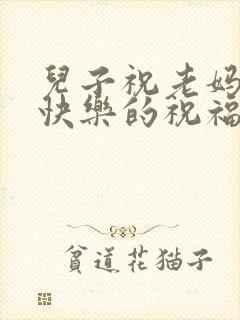 兒子祝老媽
快樂的祝福
貧道花猫子